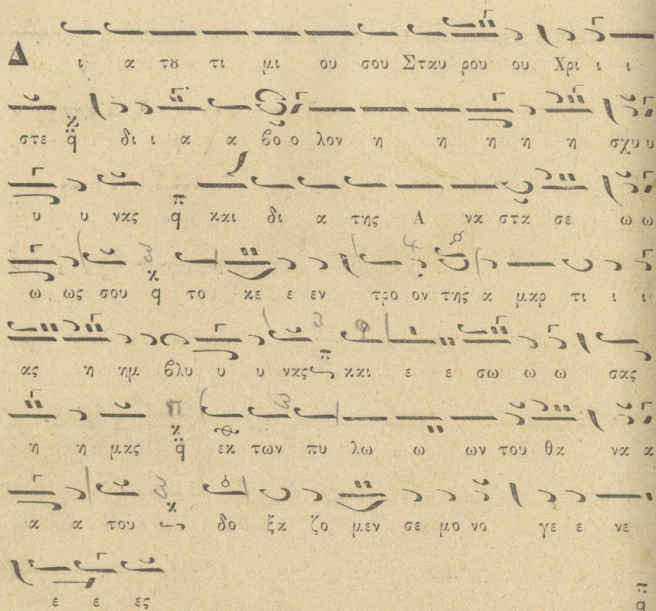 Δ ι α του τι μι ου σου Σταυ ρου ου Χρι ι ι
στε π̈ δι ι α α βο ο λον η η η η η σχυ υ
υ υ νας q και δι α της Α να στα σε ω ω
ω ως σου q το κε ε εν τρο ον της α μαρ τι ι ι
ας η ημ βλυ υ υ νας και ε ε σω ω ω σας
η η μας q εκ των πυ λω ω ων του θα να α
α α του δο ξα ζο μεν σε μο νο γε ε νε
ε ε ες